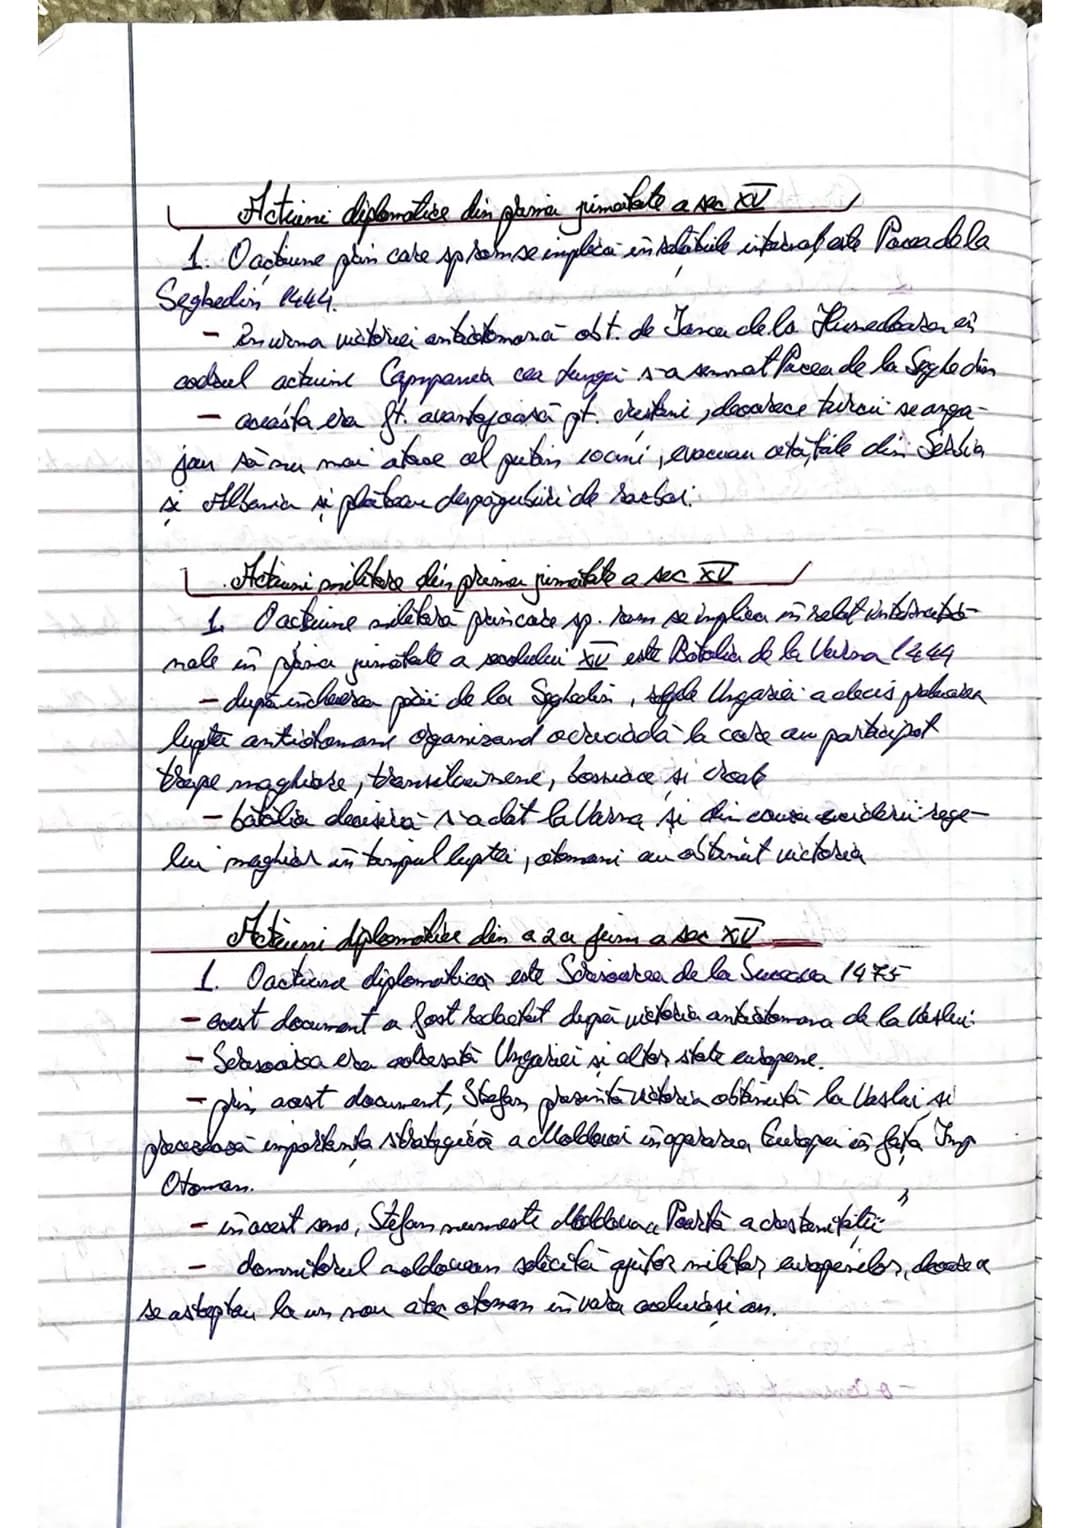 Actiuni diplomatice din prima jumatate a sec XV
1. O actiune prin care sp rom se implică în relatiile internaț este Pacea de la
Seghedin 1444.
- În urma victoriei antiotomană obt. de Iancu de la Hunedoara în
cadrul actiunii Campania cea lungă s-a semnat Pacea de la Seghedin
- aceasta era ft. avantajoasă pt. crestini, deoarece turcii se anga-
jau să nu mai atace cel putin 10 ani, evacuau cetățile din Serbia
si Albania si plăteau despăgubiri de razboi.
Actiuni militare din prima jumatate a sec XV
1. O actiune militară prin care sp. rom se implica in relat internatio-
nale in prima jumatate a secolului XV este Bătălia de la Varna 1444
- după incheierea păcii de la Seghedin, regele Ungariei a decis preluarea
luptei antiotomane organizand o cruciadă la care au participat
trupe maghiare, transilvanene, bosniace si croate
- bătălia decisivă s-a dat la Varna si din cauza uciderii rege-
lui maghiar în timpul luptei, otomanii au obtinut victoria
Actiuni diplomatice din a 2 a jum a sec XV
1. O actiune diplomatică este Scrisoarea de la Suceava 1475
- acest document a fost redactat după victoria antiotomana de la Vaslui.
- Scrisoarea era adresată Ungariei si altor state europene.
- prin acest document, Stefan prezintă victoria obtinută la Vaslui si
precizează importanta strategică a Moldovei in apararea Europei în fața Imp
Otoman.
- în acest sens, Stefan numeste Moldova „Poartă a crestinitatii”
- domnitorul moldovean solicită ajutor militar europenilor, deoarece
se asteptau la un nou atac otoman în vara aceluiași an.